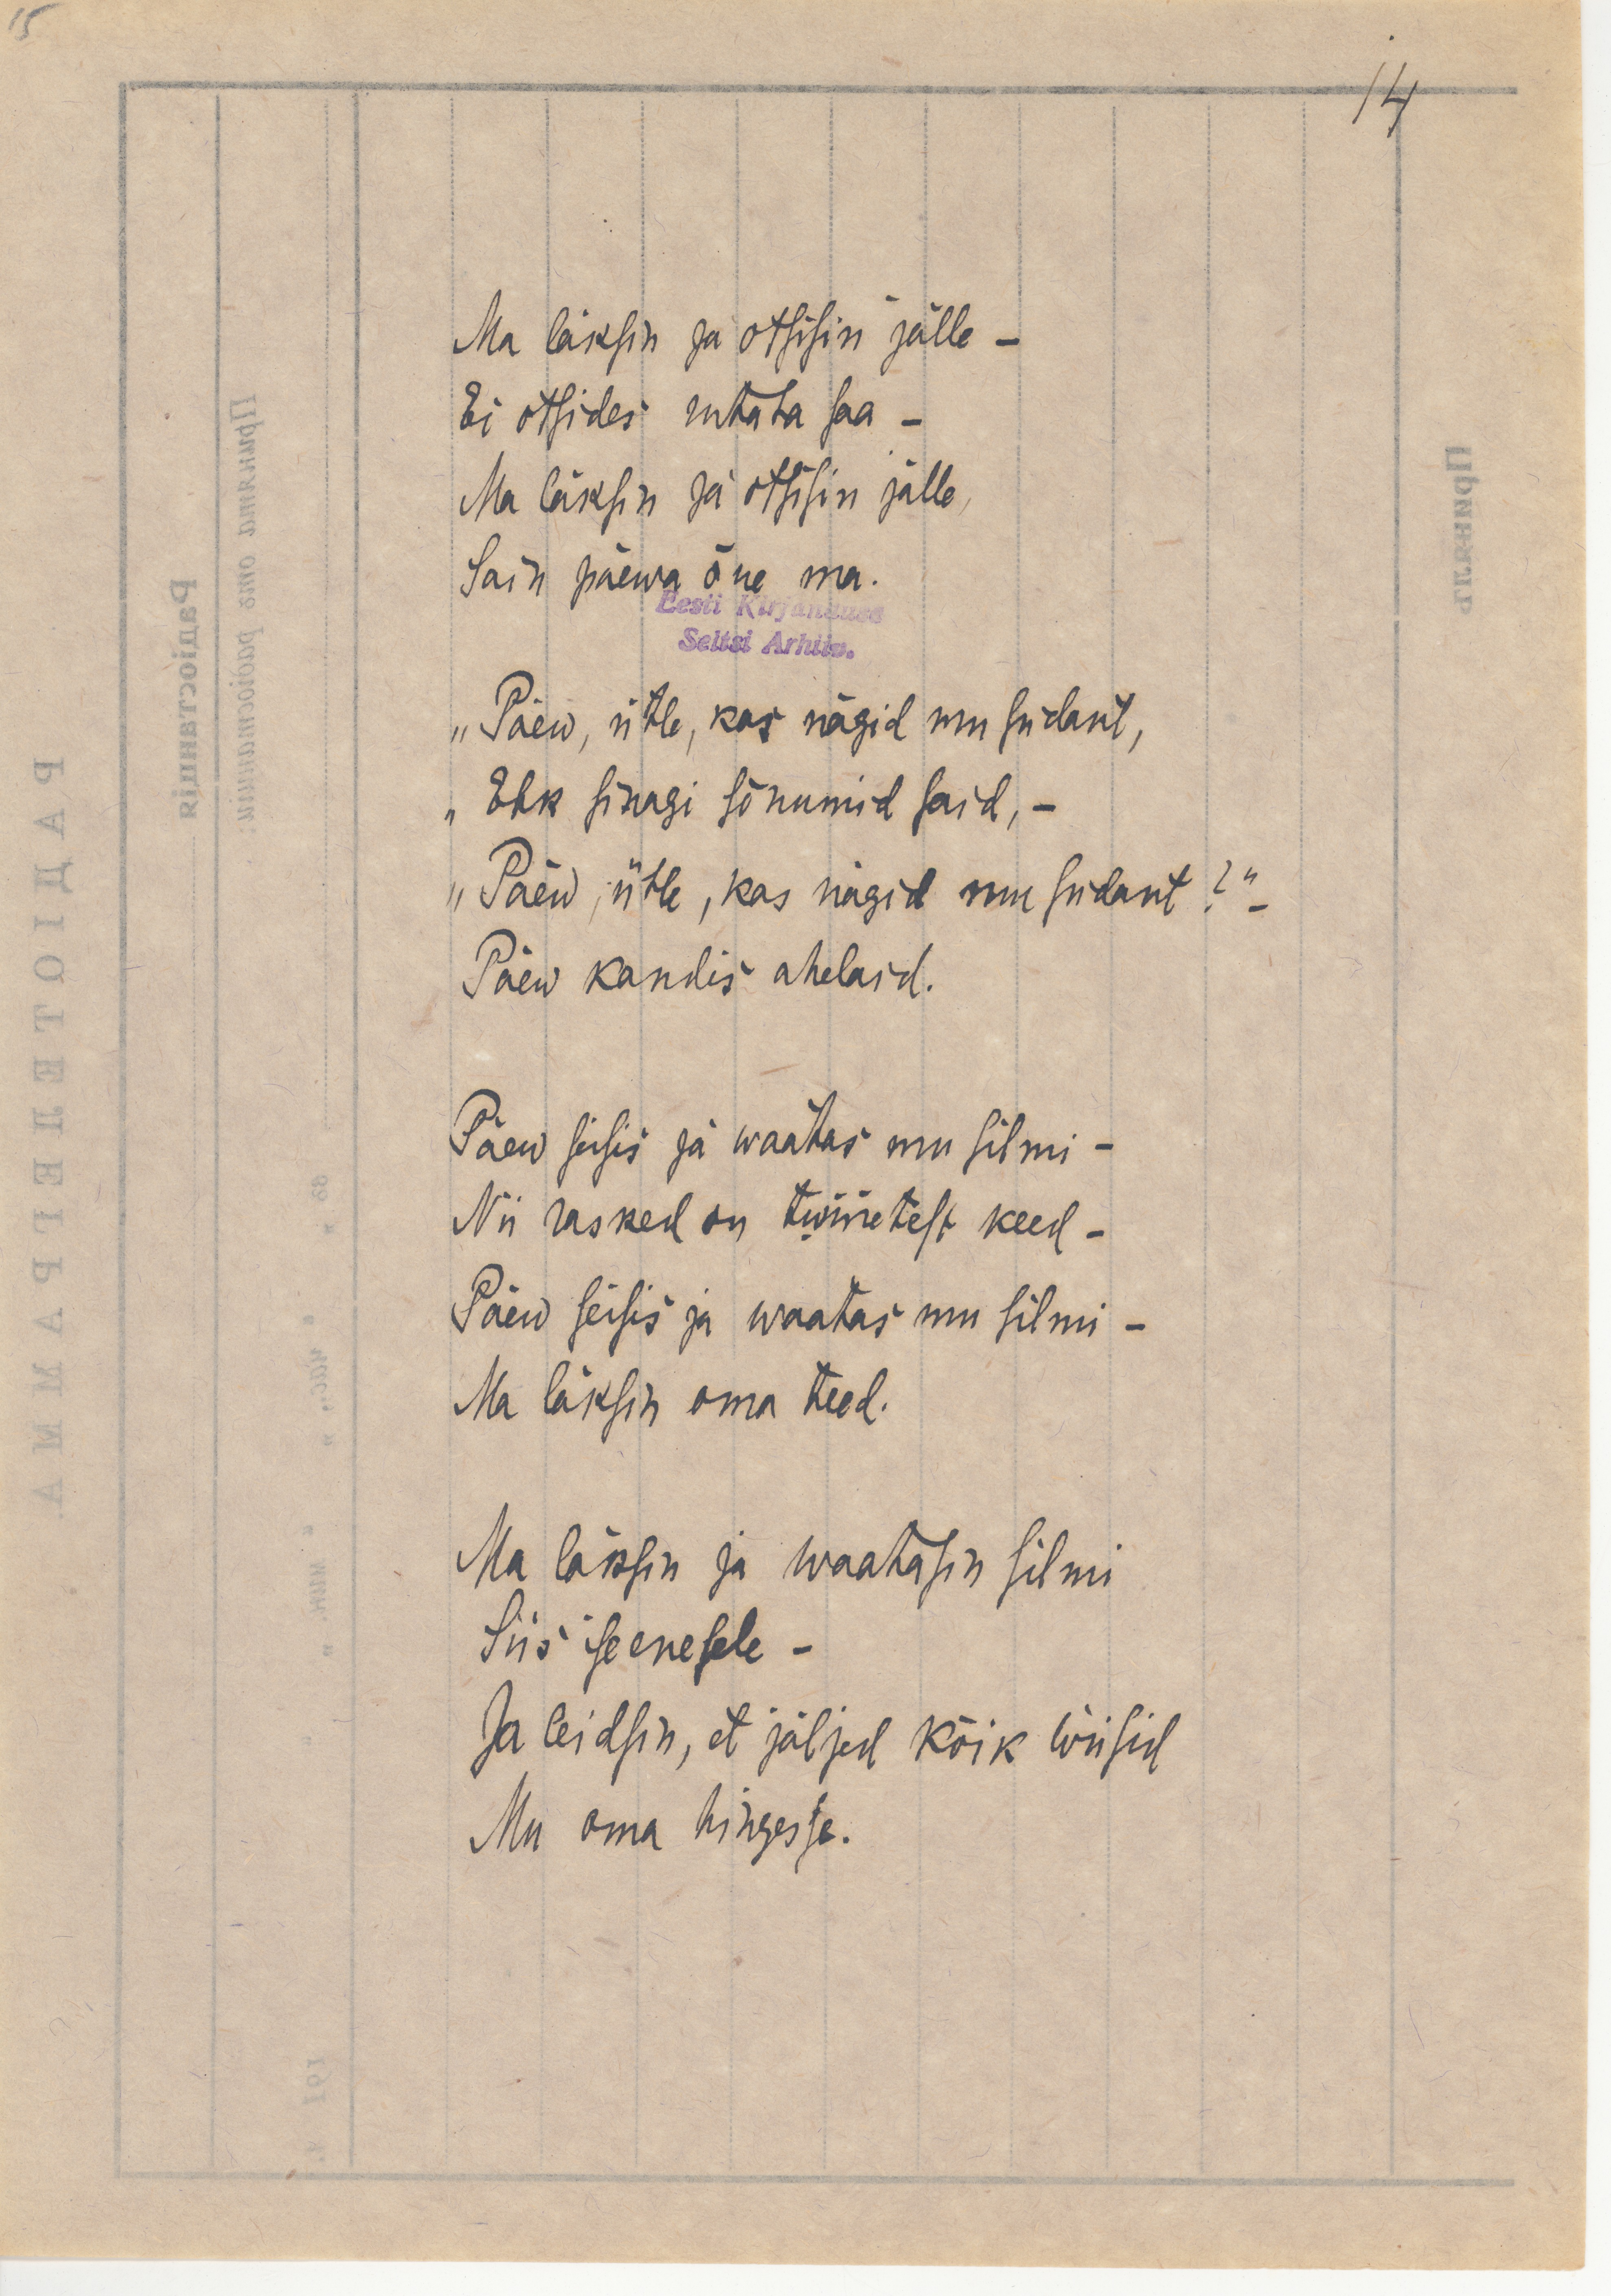 15
14
Ma läksin ja otsisin jälle –
Ei otsides rutata saa –
Ma läksin ja otsisin jälle,
Sain päewa õue ma.
Eesti Kirjanduse
Seltsi Arhiiv.
„Päew, ütle, kas nägid mu südant,
„Ehk sinagi sõnumid said, –
„Päew, ütle, kas nägid mu südant?“ –
Päew kandis ahelaid.
Päew seisis ja waatas mu silmi –
Nii rasked on keed –
Päew seisis ja waatas mu silmi –
Ma läksin oma teed.
Ma läksin ja waatasin silmi
Siis iseenesele –
Ja leidsin, et jäljed kõik wiisid
Mu oma hingesse.
РАДІОТЕЛЕГРАММА
Радіостанція
Принята отъ радіостанціи:
Принялъ